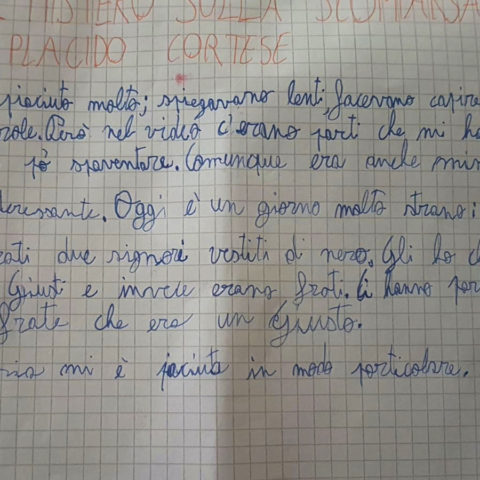 MISTERO SULLA SCOMPARSA
PLACIDO CORTESE
piaciuto molto; spiegavano lenti, facevano capire
role. Però nel video c'erano parti che mi ha
pò spaventare. Comunque era anche mis
teressante. Oggi è un giorno molto strano:
rati due signori vestiti di nero. Gli ho c
Giusti e invece erano frati. Ci hanno par
frate che era un Giusto.
ria mi è paciuta in modo particolare.